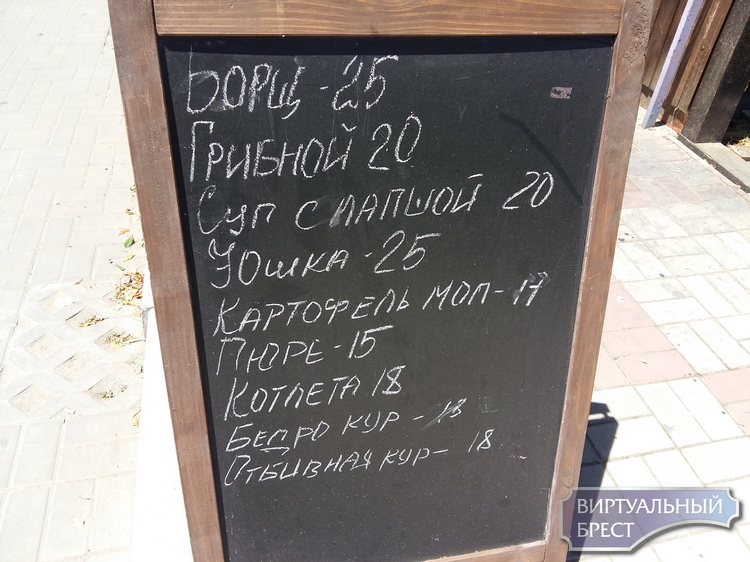 БОРЩ - 25
ГРИБНОЙ 20
Суп с ЛАПШОЙ 20
УОШКА - 25
КАРТОФЕЛЬ МОЛ - 17
ПЮРЕ - 15
КОТЛЕТА 18
БЕДРО КУР - 18
ОТБИВНАЯ КУР - 18
ВИРТУАЛЬНЫЙ
БРЕСТ